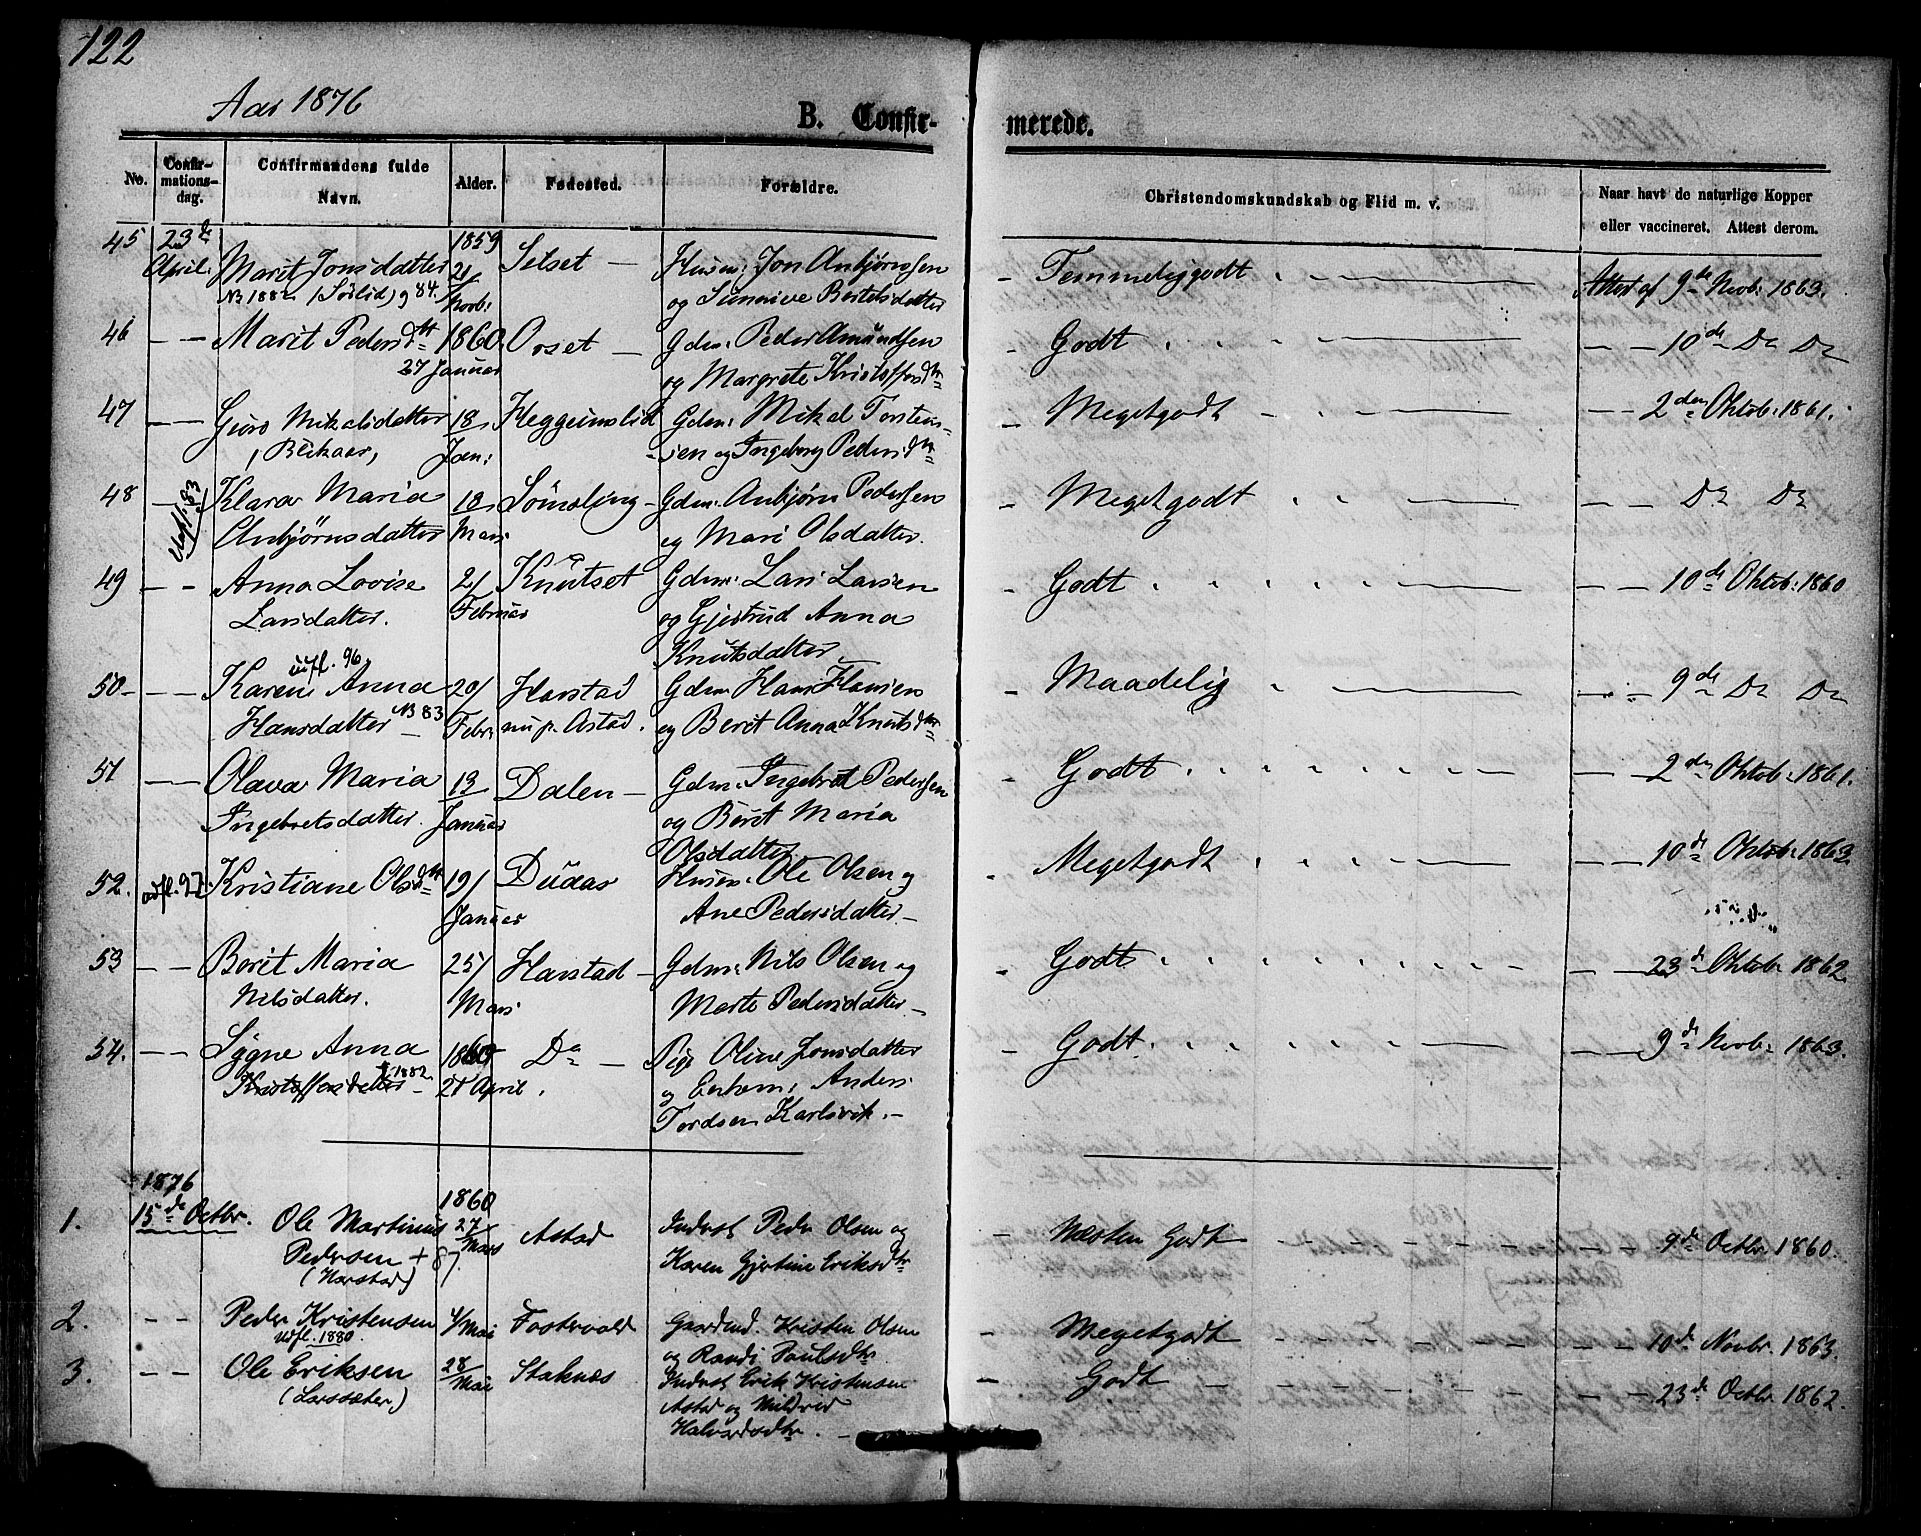 122
Aar 1876
B. Confirmerede.
No. Confirmationsdag. Confirmandens fulde Navn. Alder. Fødested. Forældre. Christendomskundskab og Flid m. v. Naar havt de naturlige Kopper eller vaccineret. Attest derom.
45 23de April: Marit Jonsdatter 1859 21/ Novb: Setset — Husm: Jon Anbjørnssen - Temmeliggodt — Attest af 9de Novb: 1863.
(Sørlid) 84. og Sunnive Bertelsdatter
46 — — Marit Pedersdtr 1860 Osset — Gdm: Peder Amundsen - Godt — — — 10de Do Do
27 Januar og Margrete Kristoffersdtr
47 — — Guro Mikalsdatter 18/ Jan: Heggeimslid Gdm: Mikal Torstens- - Megetgodt — — — 2den Oktob: 1861.
, Blekaas, sen og Ingeborg Pedersdtr
48 — Klara Maria 18/ Mars Sømsling - Gdm: Anbjørn Pedersen - Megetgodt — — Do Do
83 Anbjørnsdatter og Mari Olsdatter.
49 — — Anna Lovise 21/ Februar Knutset Gdm: Lars Larsen - Godt — — — 10de Oktob: 1860
Larsdatter. og Gjertrud Anna
Knutsdatter
udfl. 96
50 - — — Karen Anna 20/ Febr: Harstad Gdm: Hans Hansen - Maadelig — — 9de Do Do
Hansdatter — 83 nu p. Astad. og Berit Anna Knutsdtr
51 — — Olava Maria 13/ Januar Dalen — Gdm: Ingebret Pedersen - Godt — — — 2den Oktob: 1861.
Ingebretsdatter. og Berit Maria
Olsdatter
52. udfl. 97. Kristiane Olsdtr 19/ Januar Dudas Husm: Ole Olsen og - Megetgodt — — 10de Oktob: 1863
Ane Pedersdatter —
53 — — Berit Maria 25/ Mars Harstad — Gdm: Nils Olsen og - Godt — — — 23de Oktob: 1862
Nilsdatter. Marte Pedersdatter. —
54. — — Sygne Anna 1860 Do — Pige Oline Jonsdatter - Godt. — — — 9de Novb: 1863.
Kristoffersdatter — 1882. 21 April. og Enkem: Anders
Tordsen Karlsvik. —
1876 1860
1. 15de Octbr. Ole Martinius 27/Mars Astad Inderst Peder Olsen og - Næsten Godt — — — 9de Octbr 1860.
Pedersen + 87. Karen Gjertine Eriksdtr
(Harstad)
2. - - Peder Kristensen 4/Mai Fostervold Gaardmd. Kristen Olsen - Megetgodt — — — 10de Novbr. 1863.
Udfl. 1880. og Randi Paulsdtr.
3. - - Ole Eriksen 28/Mai Staknæs Inderst Erik Kristensen - Godt — — — 23de Octbr 1862.
(Larssæter.) Astad og Mildrid
Halvardsdtr. —